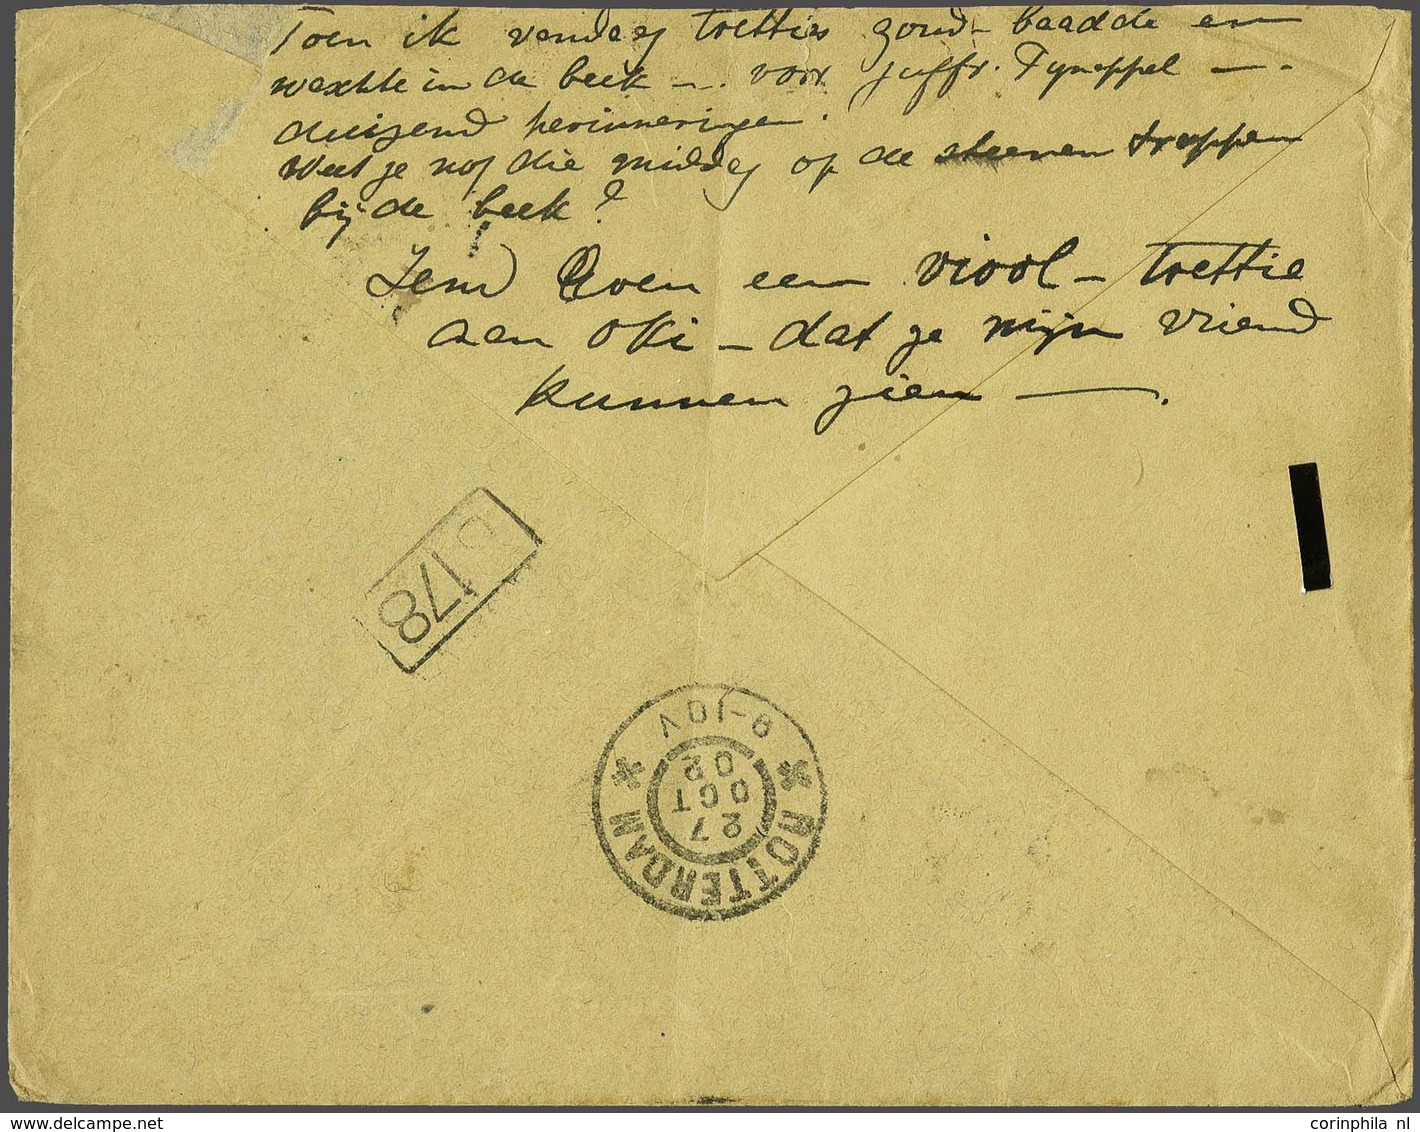 Toen ik vendeej tretties zond - baadde en
wexhte in de beek - . voor juffr. Pyneppel - .
duizend herinneringen.
Weet je nog die middag op de steenen trappen
bij de beek?
Zend Coen een viool - trettie
aan Oki - dat ze mijn vriend
kunnen zien - .
178
ROTTERDAM
27
OCT
02
8-10V
corinphila nl